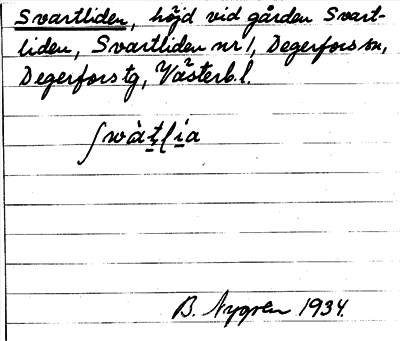 Svartliden, höjd vid gården Svart-
liden, Svartliden nr 1, Degerfors sn,
Degerfors tg, Västerb. l.
ʃwàt̠ḷi̠a
B. Nygren 1934.